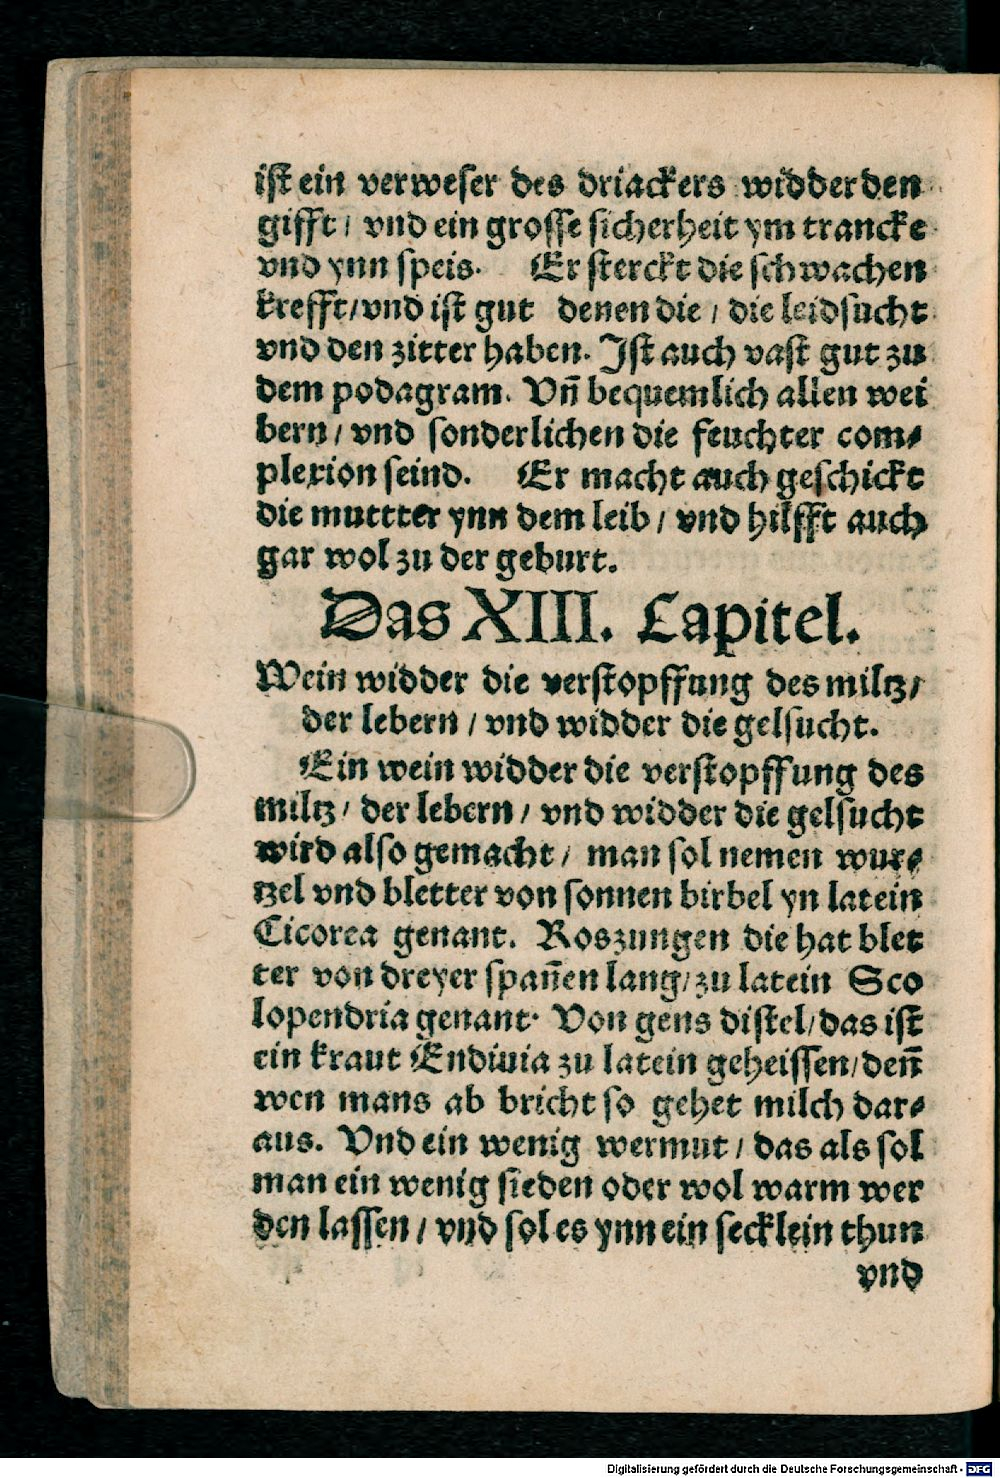 ist ein verweser des driackers widder den
gifft / vnd ein grosse sicherheit ym trancke
vnd ynn speis. Er sterckt die schwachen
krefft/vnd ist gut denen die / die leidsucht
vnd den zitter haben. Ist auch vast gut zu
dem podagram. Vñ bequemlich allen wei
bern / vnd sonderlichen die feuchter com⸗
plexion seind. Er macht auch geschickt
die muttter ynn dem leib / vnd hilfft auch
gar wol zu der geburt.
Das XIII. Capitel.
Wein widder die verstopffung des miltz/
der lebern / vnd widder die gelsucht.
Ein wein widder die verstopffung des
miltz / der lebern / vnd widder die gelsucht
wird also gemacht / man sol nemen wur⸗
tzel vnd bletter von sonnen birbel yn latein
Cicorea genant. Roszungen die hat blet
ter von dreyer spañen lang/zu latein Sco
lopendria genant. Von gens distel/das ist
ein kraut Endiuia zu latein geheissen/deñ
wen mans ab bricht so gehet milch dar⸗
aus. Vnd ein wenig wermut / das als sol
man ein wenig sieden oder wol warm wer
den lassen / vnd sol es ynn ein secklein thun
vnd
Digitalisierung gefördert durch die Deutsche Forschungsgemeinschaft - DFG